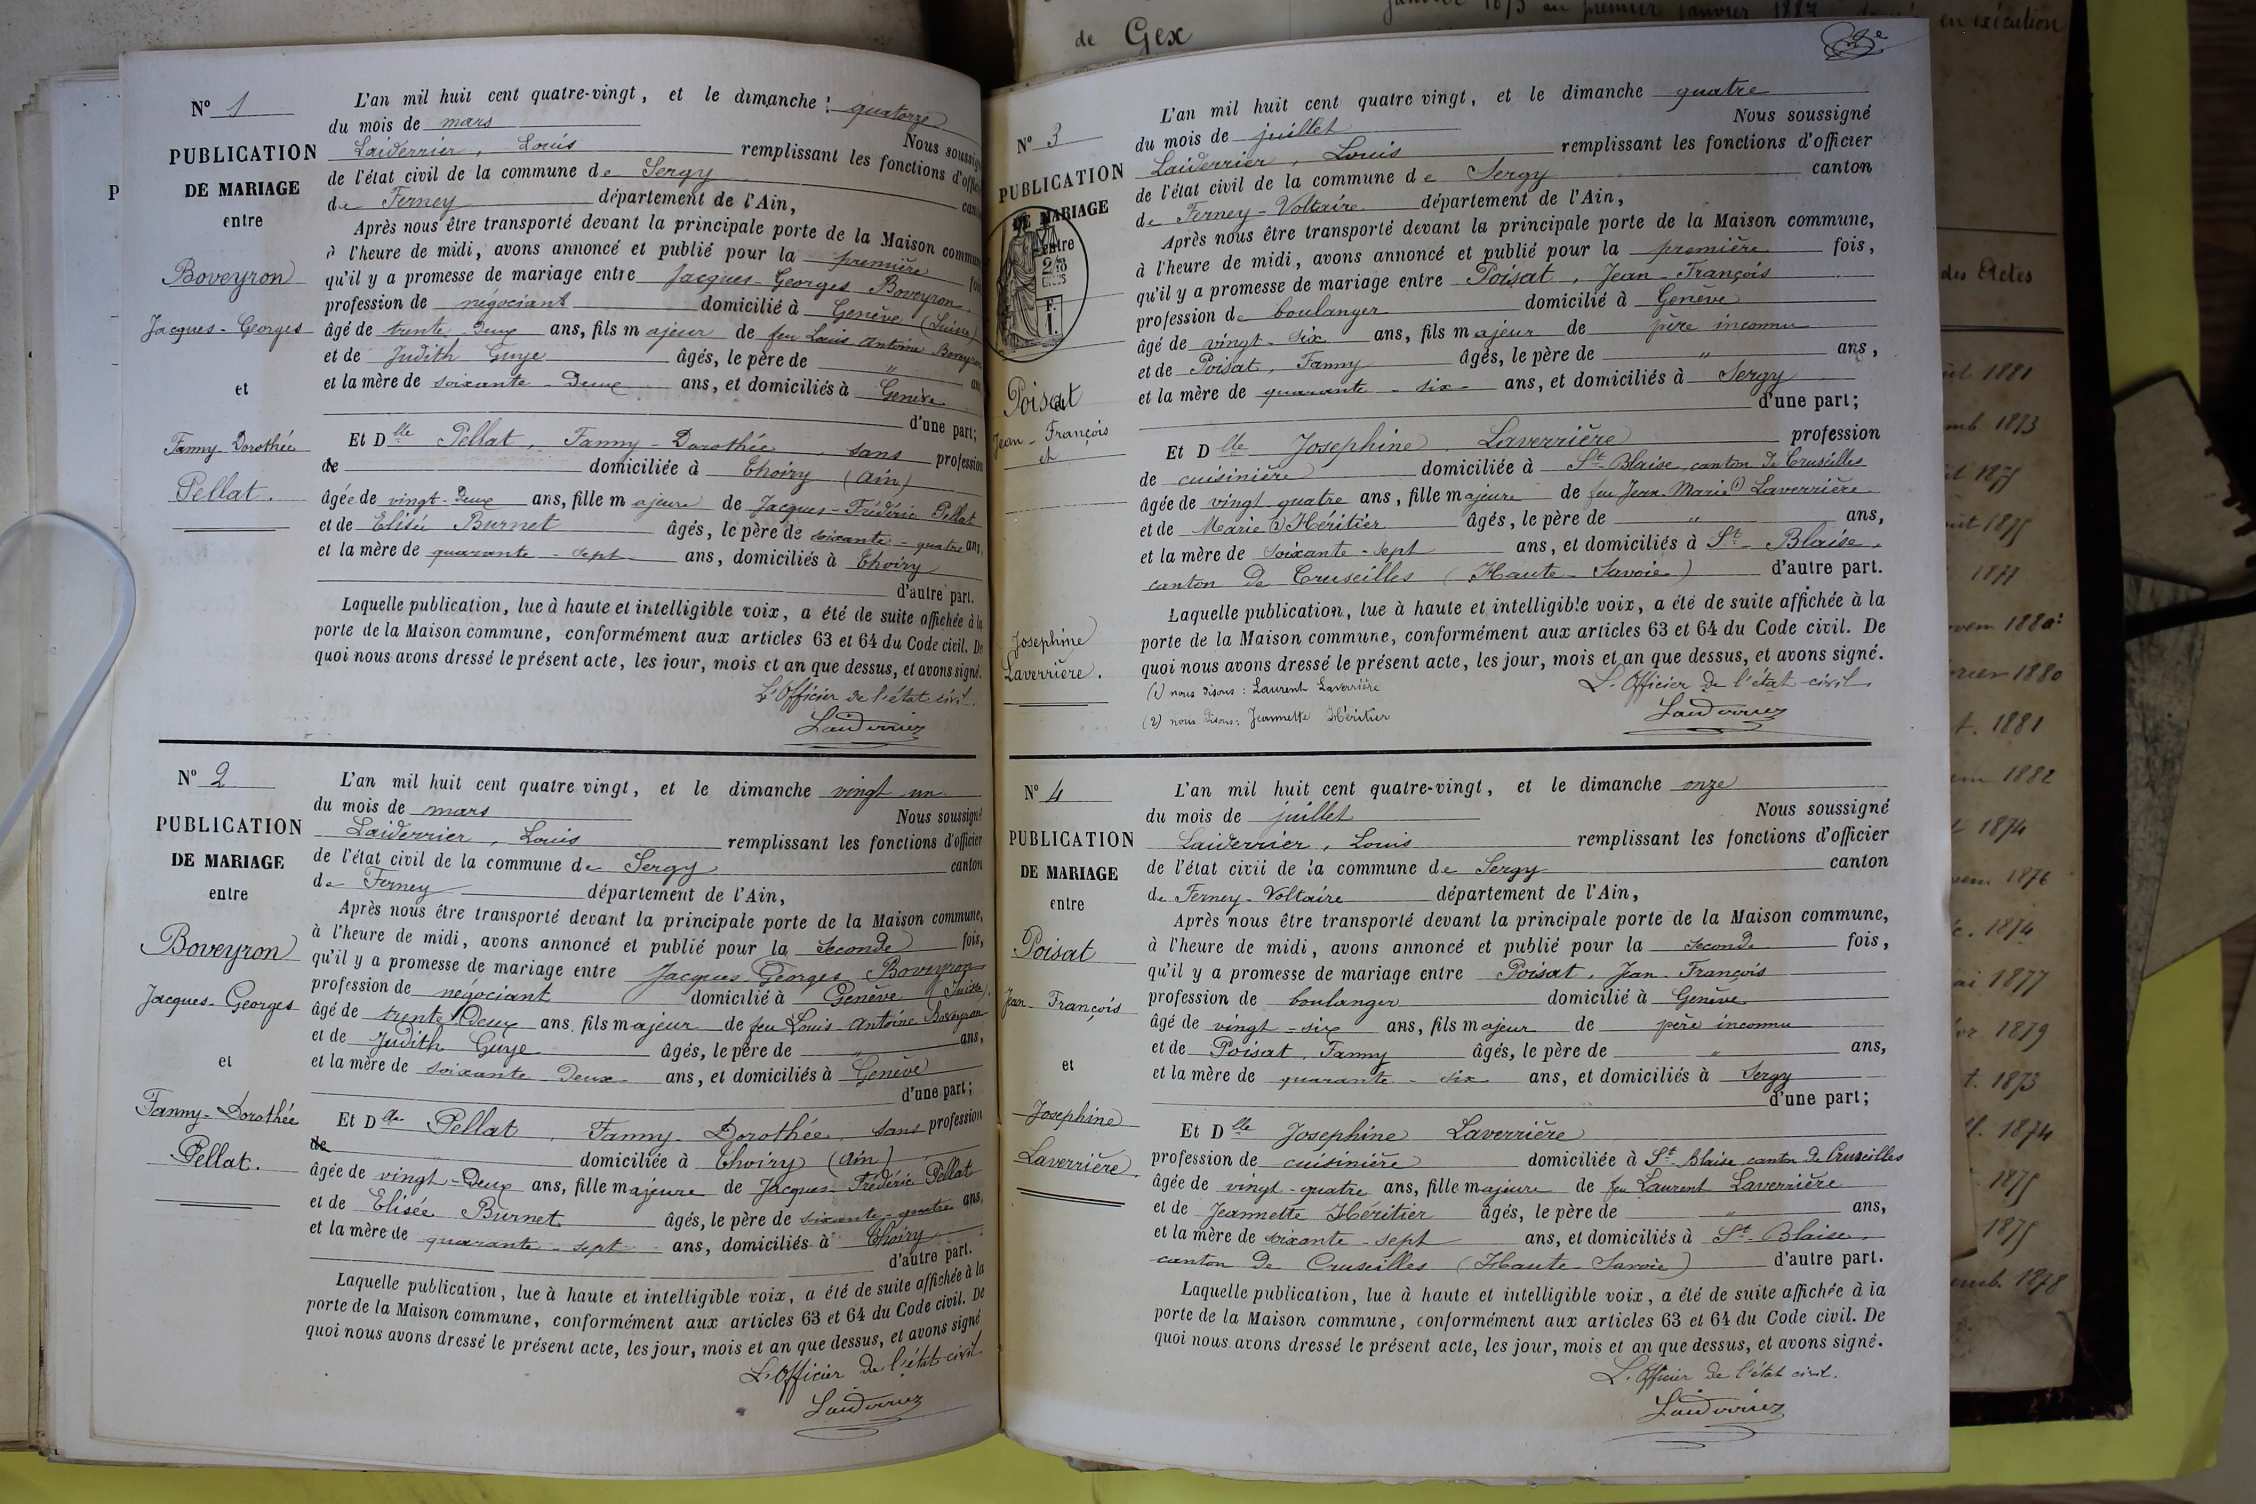 de Gex
janvier 1873 au premier janvier 1882
en exécution
N° 1
PUBLICATION
DE MARIAGE
entre
Boveyron
Jacques-Georges
et
Fanny Dorothée
Pellat.
L'an mil huit cent quatre-vingt, et le dimanche quatorze
du mois de mars
Nous soussigné
Laiderrier, Louis remplissant les fonctions d'officier
de l'état civil de la commune de Sergy
de Ferney département de l'Ain,
Après nous être transporté devant la principale porte de la Maison commune
à l'heure de midi, avons annoncé et publié pour la première
qu'il y a promesse de mariage entre Jacques-Georges Boveyron
profession de négociant domicilié à Genève (Suisse)
âgé de trente deux ans, fils majeur de feu Louis Antoine Boveyron
et de Judith Guye âgés, le père de "
et la mère de soixante-deux ans, et domiciliés à Genève
d'une part;
Et Dlle Pellat, Fanny-Dorothée, sans profession
de domiciliée à Thoiry (Ain)
âgée de vingt-deux ans, fille majeure de Jacques-Frédéric Pellat
et de Elisée Burnet âgés, le père de soixante-quatre ans,
et la mère de quarante-sept ans, domiciliés à Thoiry
d'autre part.
Laquelle publication, lue à haute et intelligible voix, a été de suite affichée à la
porte de la Maison commune, conformément aux articles 63 et 64 du Code civil. De
quoi nous avons dressé le présent acte, les jour, mois et an que dessus, et avons signé.
L'Officier de l'état civil.
Laiderrier
N° 2
PUBLICATION
DE MARIAGE
entre
Boveyron
Jacques-Georges
et
Fanny-Dorothée
Pellat.
L'an mil huit cent quatre vingt, et le dimanche vingt un
du mois de mars
Nous soussigné
Laiderrier, Louis remplissant les fonctions d'officier
de l'état civil de la commune de Sergy canton
de Ferney département de l'Ain,
Après nous être transporté devant la principale porte de la Maison commune,
à l'heure de midi, avons annoncé et publié pour la seconde fois,
qu'il y a promesse de mariage entre Jacques Georges Boveyron
profession de négociant domicilié à Genève (Suisse).
âgé de trente deux ans, fils majeur de feu Louis Antoine Boveyron
et de Judith Guye âgés, le père de " ans,
et la mère de soixante deux ans, et domiciliés à Genève
d'une part;
Et Dlle Pellat, Fanny-Dorothée, sans profession
de domiciliée à Thoiry (Ain)
âgée de vingt-deux ans, fille majeure de Jacques-Frédéric Pellat
et de Elisée Burnet âgés, le père de soixante-quatre ans,
et la mère de quarante-sept ans, domiciliés à Thoiry
d'autre part.
Laquelle publication, lue à haute et intelligible voix, a été de suite affichée à la
porte de la Maison commune, conformément aux articles 63 et 64 du Code civil. De
quoi nous avons dressé le présent acte, les jour, mois et an que dessus, et avons signé
L'Officier de l'état civil.
Laiderrier
N° 3
PUBLICATION
DE MARIAGE
entre
Poisat
Jean-François
et
Josephine
Laverrière.
L'an mil huit cent quatre vingt, et le dimanche quatre
du mois de juillet
Nous soussigné
Laiderrier, Louis remplissant les fonctions d'officier
de l'état civil de la commune de Sergy canton
de Ferney-Voltaire département de l'Ain,
Après nous être transporté devant la principale porte de la Maison commune,
à l'heure de midi, avons annoncé et publié pour la première fois,
qu'il y a promesse de mariage entre Poisat, Jean-François
profession de boulanger domicilié à Genève
âgé de vingt-six ans, fils majeur de père inconnu
et de Poisat, Fanny âgés, le père de " ans,
et la mère de quarante-six ans, et domiciliés à Sergy
d'une part;
Et Dlle Josephine Laverrière profession
de cuisinière domiciliée à St-Blaise, canton de Cruseilles
âgée de vingt quatre ans, fille majeure de feu Jean-Marie (1) Laverrière
et de Marie (2) Héritier âgés, le père de " ans,
et la mère de soixante-sept ans, et domiciliés à St-Blaise,
canton de Cruseilles (Haute-Savoie) d'autre part.
Laquelle publication, lue à haute et intelligible voix, a été de suite affichée à la
porte de la Maison commune, conformément aux articles 63 et 64 du Code civil. De
quoi nous avons dressé le présent acte, les jour, mois et an que dessus, et avons signé.
(1) nous disons: Laurent Laverrière
(2) nous disons: Jeannette Héritier
L'Officier de l'état civil.
Laiderrier
N° 4
PUBLICATION
DE MARIAGE
entre
Poisat
Jean François
et
Josephine
Laverrière.
L'an mil huit cent quatre-vingt, et le dimanche onze
du mois de juillet
Nous soussigné
Laiderrier, Louis remplissant les fonctions d'officier
de l'état civil de la commune de Sergy canton
de Ferney-Voltaire département de l'Ain,
Après nous être transporté devant la principale porte de la Maison commune,
à l'heure de midi, avons annoncé et publié pour la seconde fois,
qu'il y a promesse de mariage entre Poisat, Jean-François
profession de boulanger domicilié à Genève
âgé de vingt-six ans, fils majeur de père inconnu
et de Poisat, Fanny âgés, le père de " ans,
et la mère de quarante-six ans, et domiciliés à Sergy
d'une part;
Et Dlle Josephine Laverrière
profession de cuisinière domiciliée à St-Blaise canton de Cruseilles
âgée de vingt-quatre ans, fille majeure de feu Laurent Laverrière
et de Jeannette Héritier âgés, le père de " ans,
et la mère de soixante-sept ans, et domiciliés à St-Blaise,
canton de Cruseilles (Haute-Savoie) d'autre part.
Laquelle publication, lue à haute et intelligible voix, a été de suite affichée à la
porte de la Maison commune, conformément aux articles 63 et 64 du Code civil. De
quoi nous avons dressé le présent acte, les jour, mois et an que dessus, et avons signé.
L'Officier de l'état civil.
Laiderrier
des Actes
1881
1873
1875
1875
1877
1880
1880
1881
1882
1874
1876
1874
1877
1879
1873
1874
1875
1875
1878